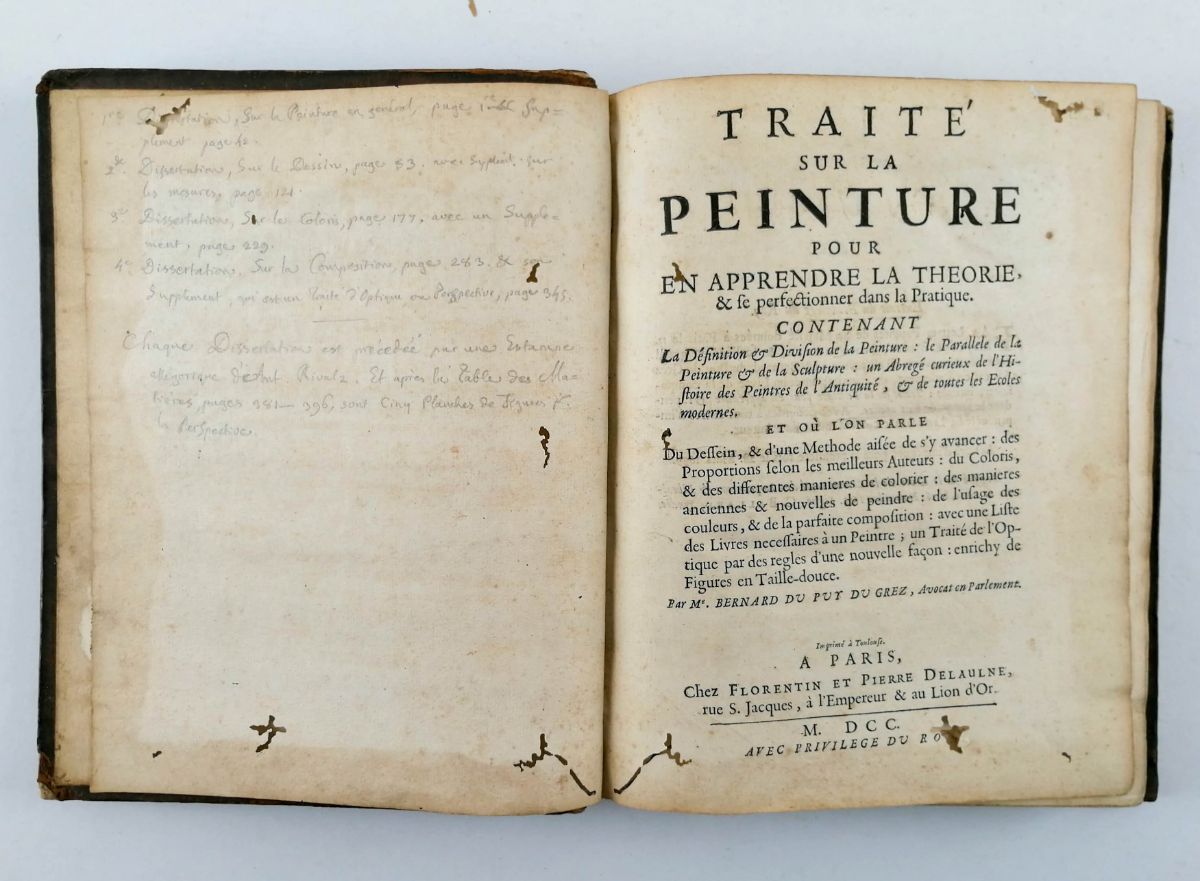 1re Dissertation, Sur la Peinture en général, page 1re Sup-
plement page 42.
2de Dissertation, Sur le Dessin, page 83. avec Supplém. sur
les mesures, page 121.
3e Dissertation, Sur les Coloris, page 177, avec un Supple-
ment, page 229.
4e Dissertation, Sur la Composition, page 283. & son
Supplement, qui est un Traité d'Optique ou Perspective, page 345.
Chaque Dissertation est précédée par une Estampe
allégorique d'Ant Rivalz. Et après la Table des Ma-
tières, pages 381–396, sont Cinq Planches de Figures
la Perspective.
TRAITÉ
SUR LA
PEINTURE
POUR
EN APPRENDRE LA THEORIE,
& ſe perfectionner dans la Pratique.
CONTENANT
La Définition & Diviſion de la Peinture : le Parallele de la
Peinture & de la Sculpture : un Abregé curieux de l'Hi-
ſtoire des Peintres de l'Antiquité, & de toutes les Ecoles
modernes.
ET OÙ L'ON PARLE
Du Deſſein, & d'une Methode aiſée de s'y avancer : des
Proportions ſelon les meilleurs Auteurs : du Coloris,
& des differentes manieres de colorier : des manieres
anciennes & nouvelles de peindre : de l'uſage des
couleurs, & de la parfaite compoſition : avec une Liſte
des Livres neceſſaires à un Peintre ; un Traité de l'Op-
tique par des regles d'une nouvelle façon : enrichy de
Figures en Taille-douce.
Par Me. BERNARD DU PUY DU GREZ, Avocat en Parlement.
Imprimé à Toulouſe.
A PARIS,
Chez FLORENTIN ET PIERRE DELAULNE,
rue S. Jacques, à l'Empereur & au Lion d'Or.
M. DCC.
AVEC PRIVILEGE DU ROY